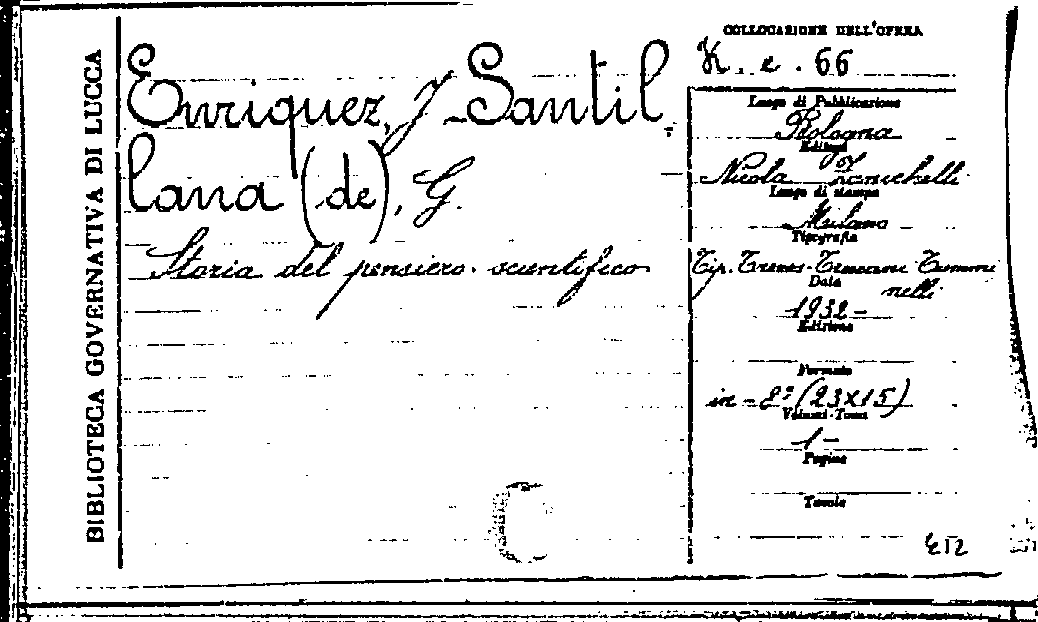 BIBLIOTECA GOVERNATIVA DI LUCCA
Enriquez, J - Santil
lana (de), G.
Storia del pensiero scientifico
COLLOCAZIONE DELL'OPERA
K. e. 66
Luogo di Pubblicazione
Bologna
Editori
Nicola Zanichelli
Luogo di stampa
Milano
Tipografia
Tip. Treves-Treccani-Tummi
nelli
Data
1932 -
Edizione
Formato
in - 8° (23X15)
Volumi-Tomi
1 -
Pagine
Tavole